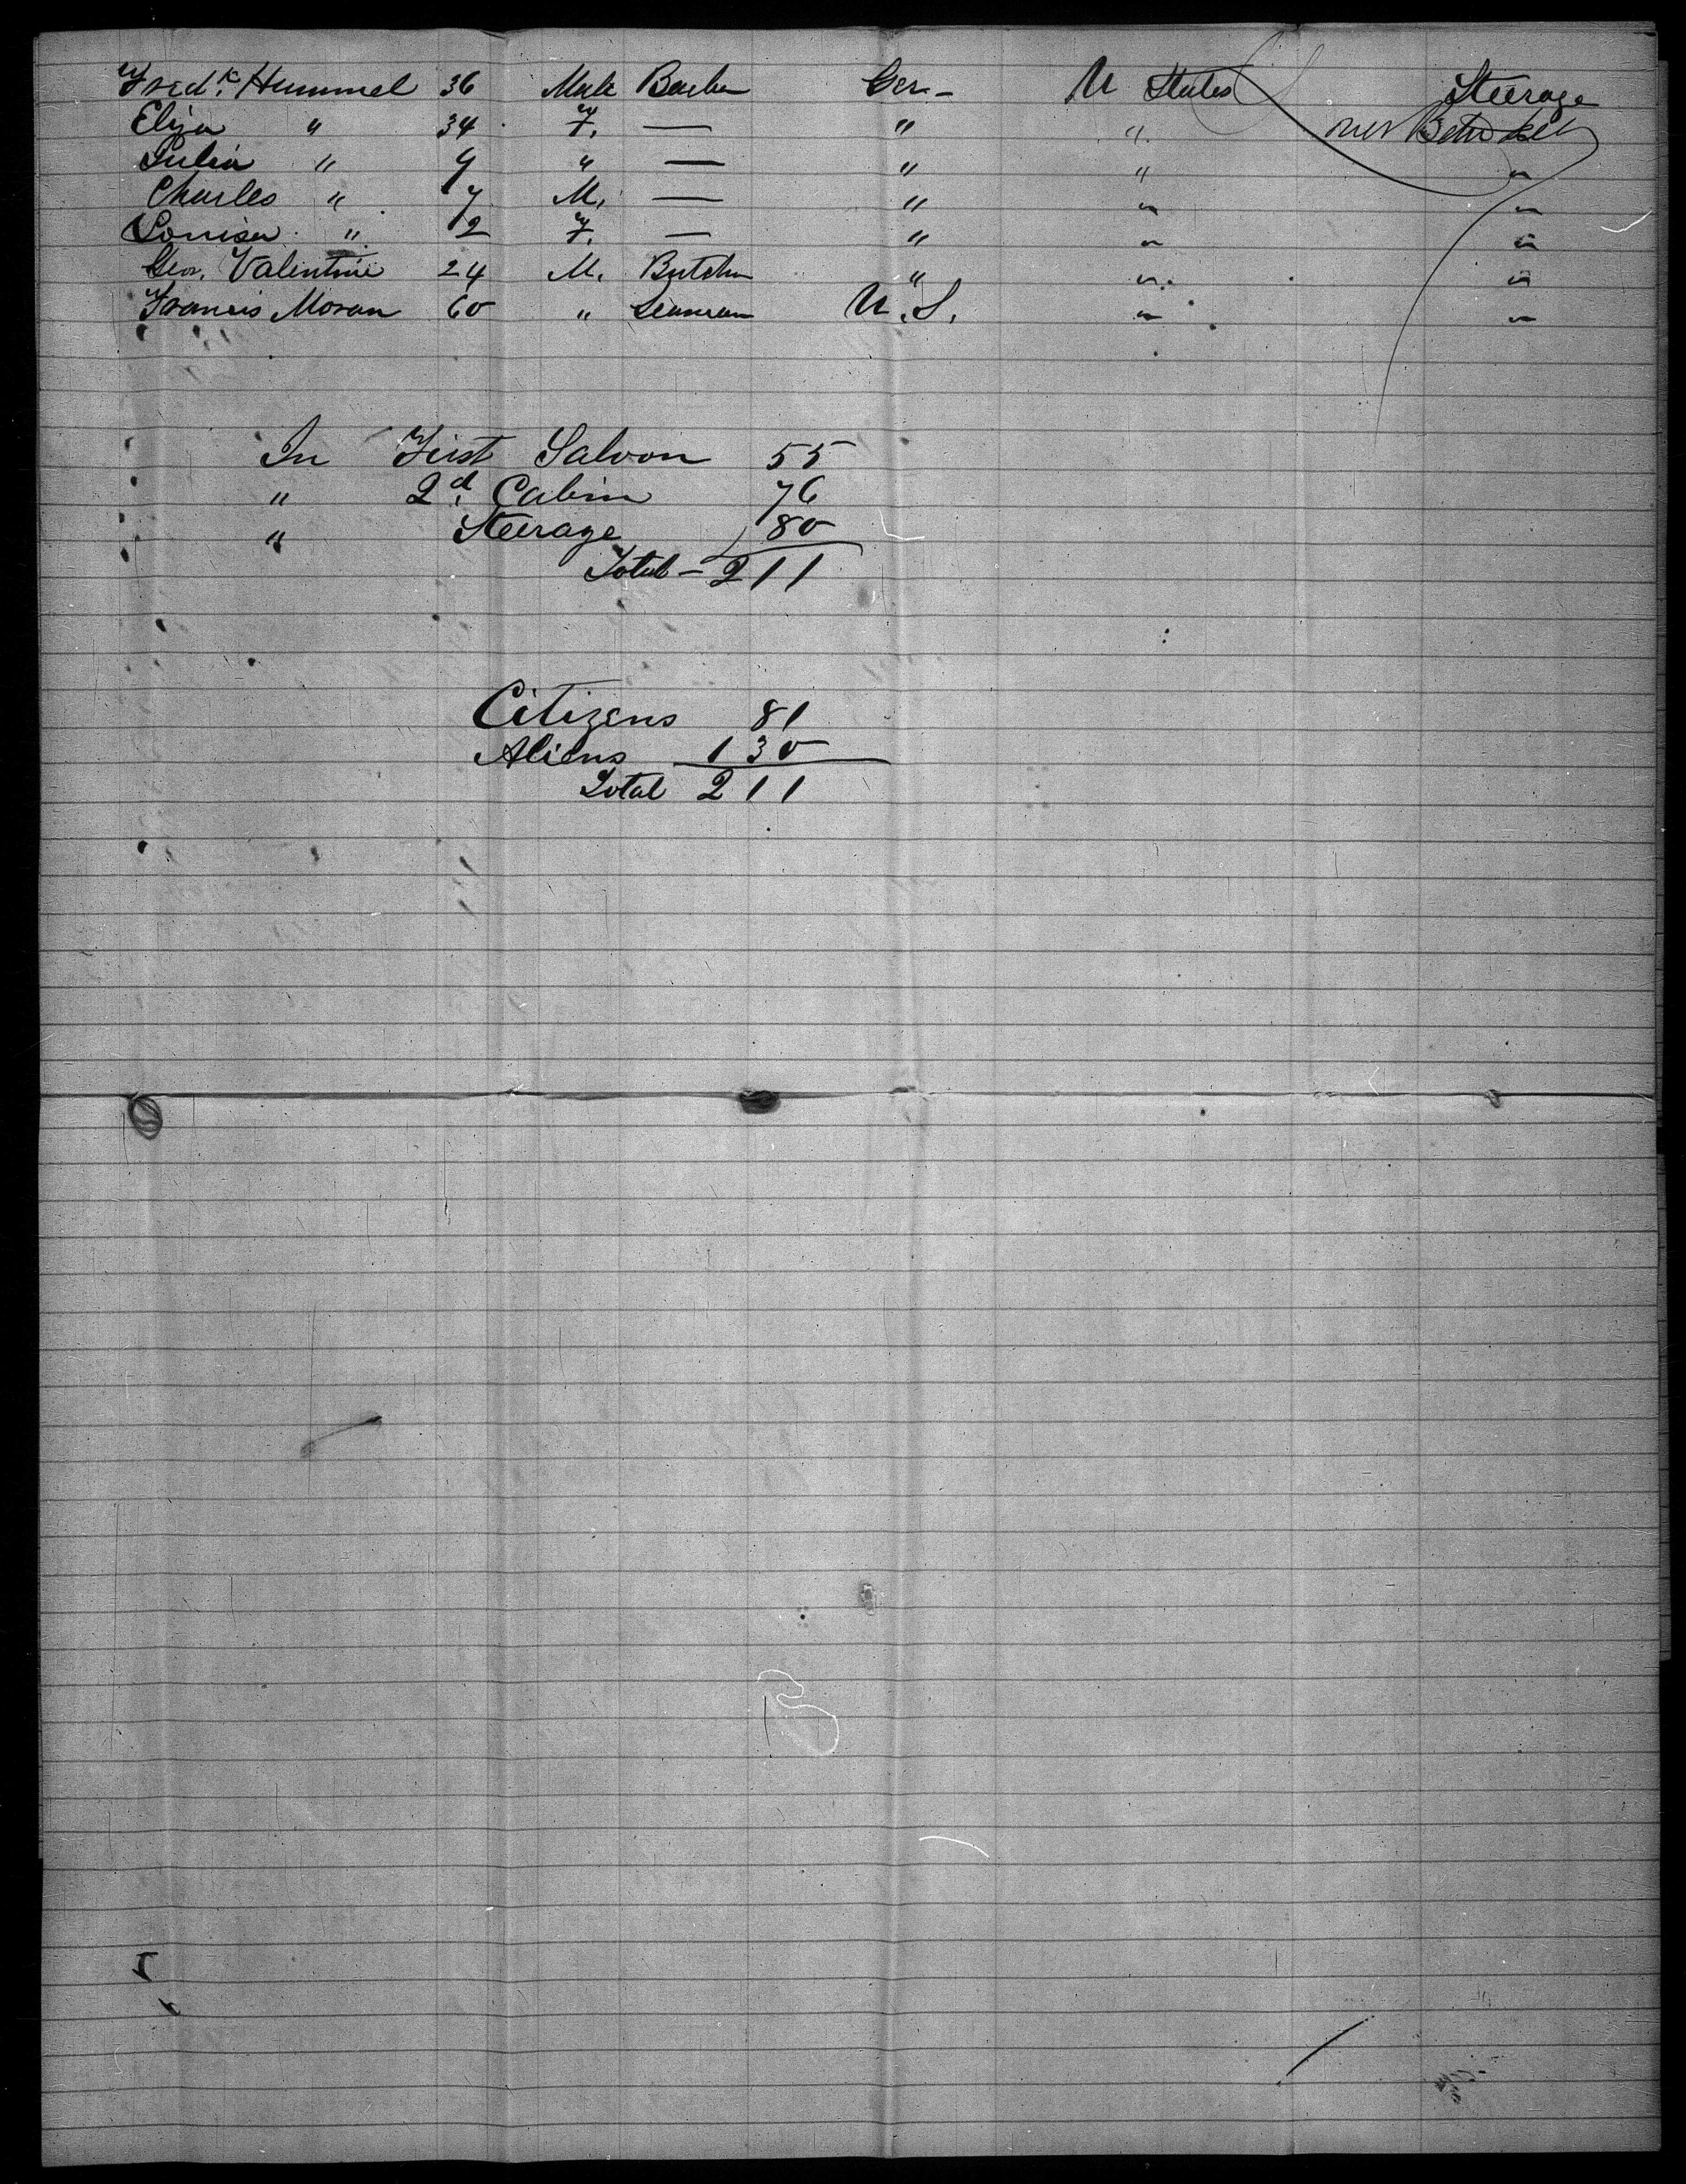 Fred.k Hummel 36 Male Barber Ger - U States Steerage
Eliza " 34 F. — " " Betw deck
Julia " 9 " — " " "
Charles " 7 M. — " " "
Louisa " 2 F. — " " "
Geo. Valentine 24 M. Butcher " " "
Francis Moran 60 " Seaman U.S. " "
In First Saloon 55
" 2d. Cabin 76
" Steerage 80
Total - 211
Citizens 81
Aliens 130
Total 211